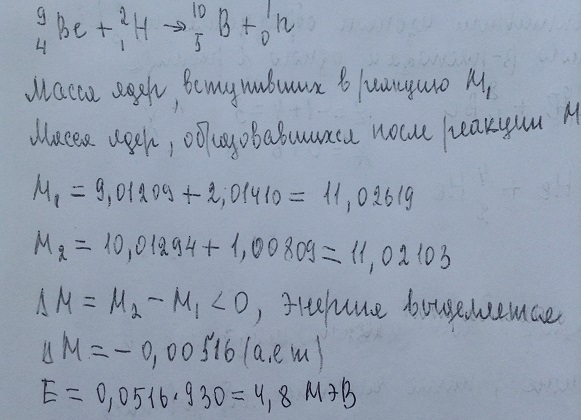 ⁹₄Be + ²₁H → ¹⁰₅B + ¹₀n
Масса ядер, вступивших в реакцию M₁
Масса ядер, образовавшихся после реакции M
M₁ = 9,01209 + 2,01410 = 11,02619
M₂ = 10,01294 + 1,00809 = 11,02103
ΔM = M₂ − M₁ < 0, энергия выделяется
ΔM = −0,00516 (а.е м)
E = 0,0516·930 = 4,8 МэВ